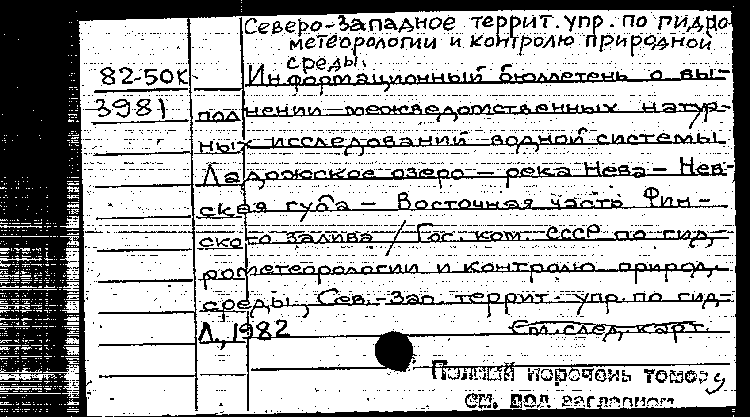 Северо-Западное террит. упр. по гидро-
метеорологии и контролю природной
среды.
82-50К Информационный бюллетень о вы-
3981 полнении межведомственных натур-
ных исследований водной системы
Ладожское озеро – река Нева – Нев-
ская губа – Восточная часть Фин-
ского залива / Гос. ком. СССР по гид-
рометеорологии и контролю природ.
среды, Сев.-Зап. террит. упр. по гид-
Л., 1982 См. след. карт.
Полный перечень томов
см. под заглавием